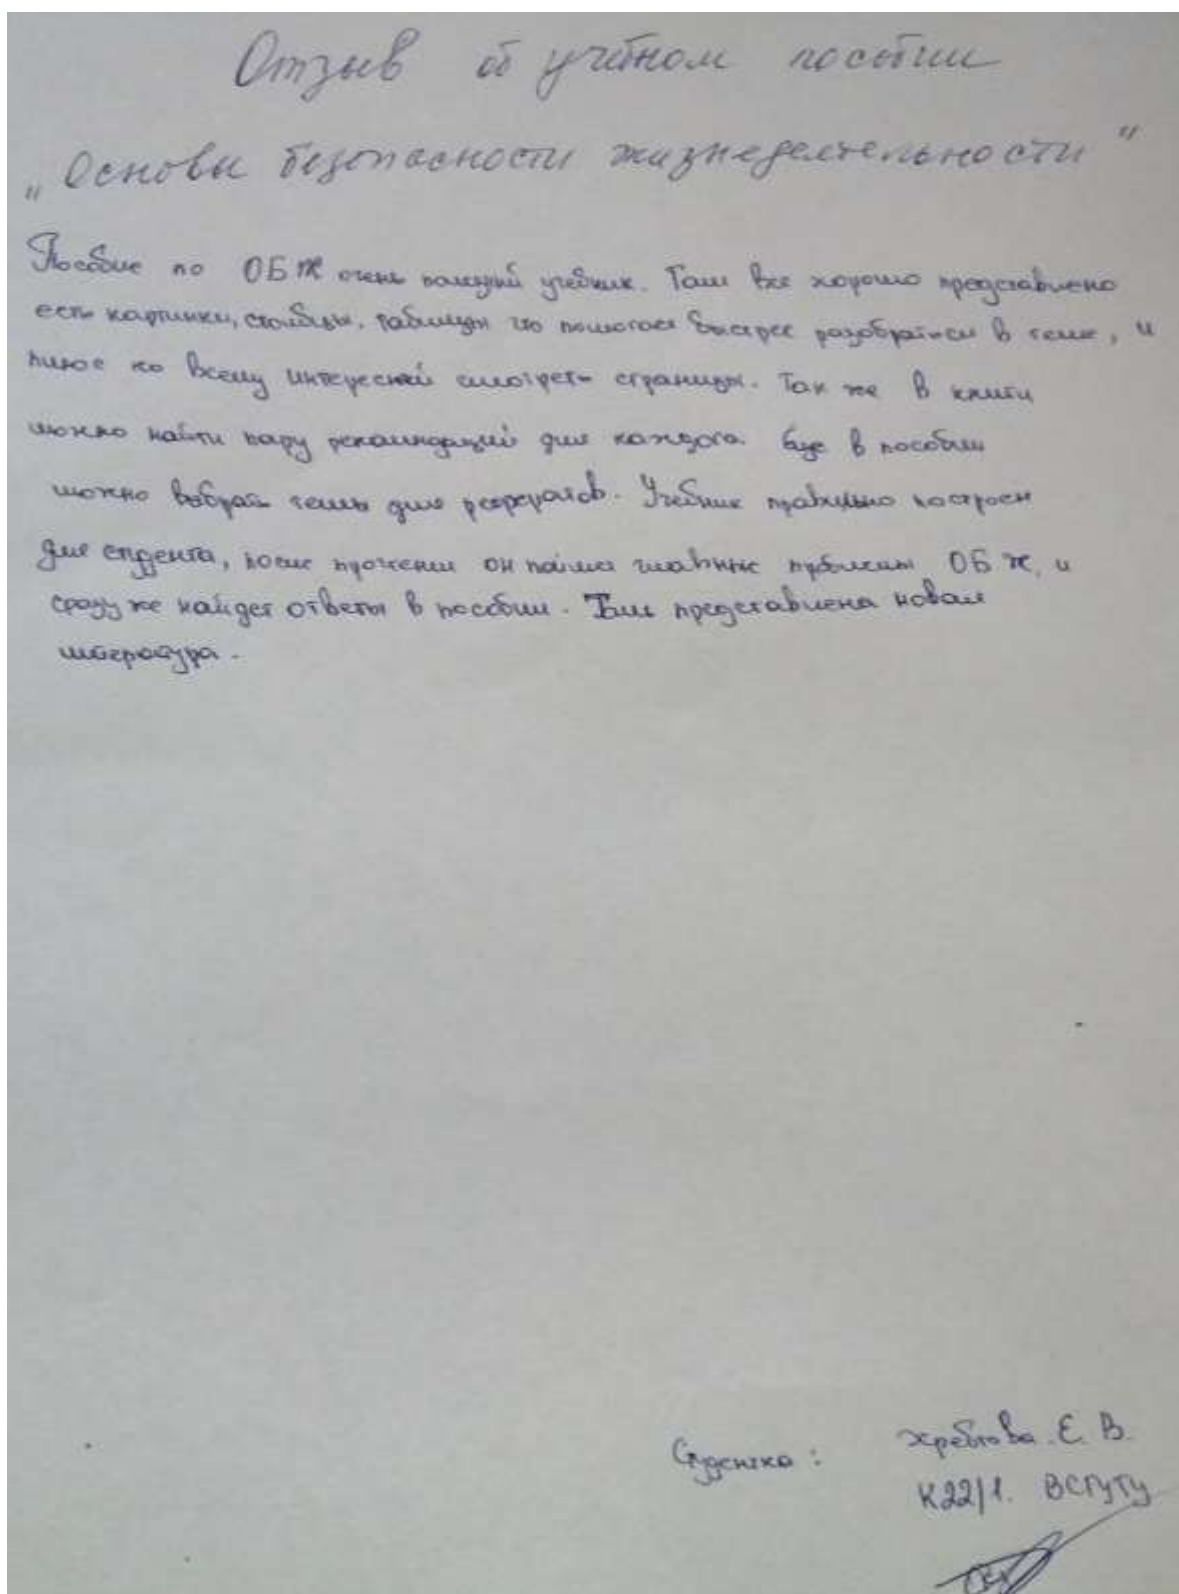 Отзыв об учебном пособии
„Основы безопасности жизнедеятельности"
Пособие по ОБЖ очень полезный учебник. Там все хорошо представлено
есть картинки, столбцы, таблицы что помогает быстрее разобраться в теме, и
плюс ко всему интересней смотреть страницы. Так же в книги
можно найти пару рекомендаций для каждого. Еще в пособии
можно выбрать темы для рефератов. Учебник правильно построен
для студента, после прочтении он поймет главные проблемы ОБЖ, и
сразу же найдет ответы в пособии. Там представлена новая
литература.
Студентка: Хребтова Е. В.
К22/1. ВСГУТУ